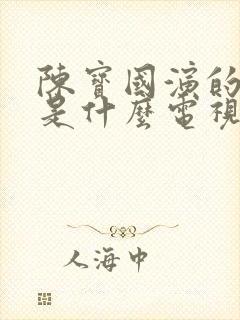 陳寶國演的
是什麼電視
人海中